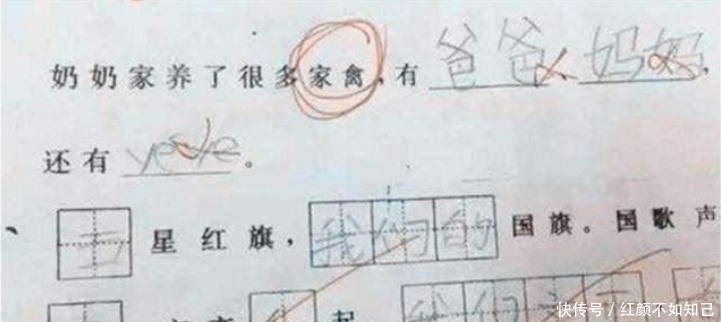 奶奶家养了很多家禽,有爸爸、妈妈,
还有yeye。
、五星红旗,我们的国旗。国歌声
起 我们
快传号/红颜不如知己